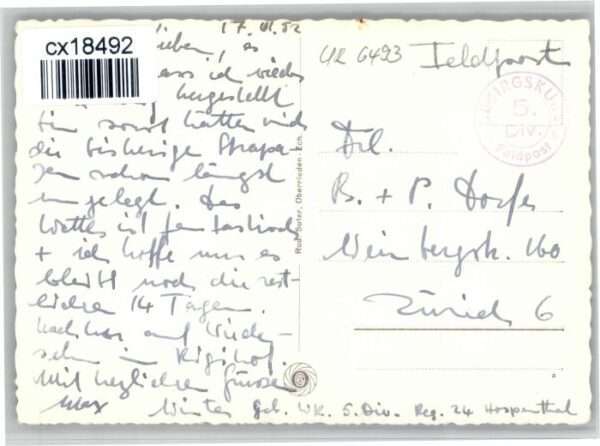 cx18492
17.III.52
ieben, es
ass ich wieder
hergestellt
bin sonst hätten mich
die bisherige Strapa-
zen schon längst
umgelegt. Das
Wetter ist fantastisch
+ ich hoffe nur es
bleibt noch die rest-
lichen 14 Tagen.
Nachher auf Wieder-
sehn im Rigihof.
Mit herzlichen Grüssen
Max
Winter Geb. WK. 5. Div. Reg. 24 Hospenthal
Rud. Suter, Oberrieden-Zch.
UR 6493 Feldpost
5.
Div.
Feldpost
Frl.
B. + P. Dorfer
Weinbergstr. 160
Zürich 6